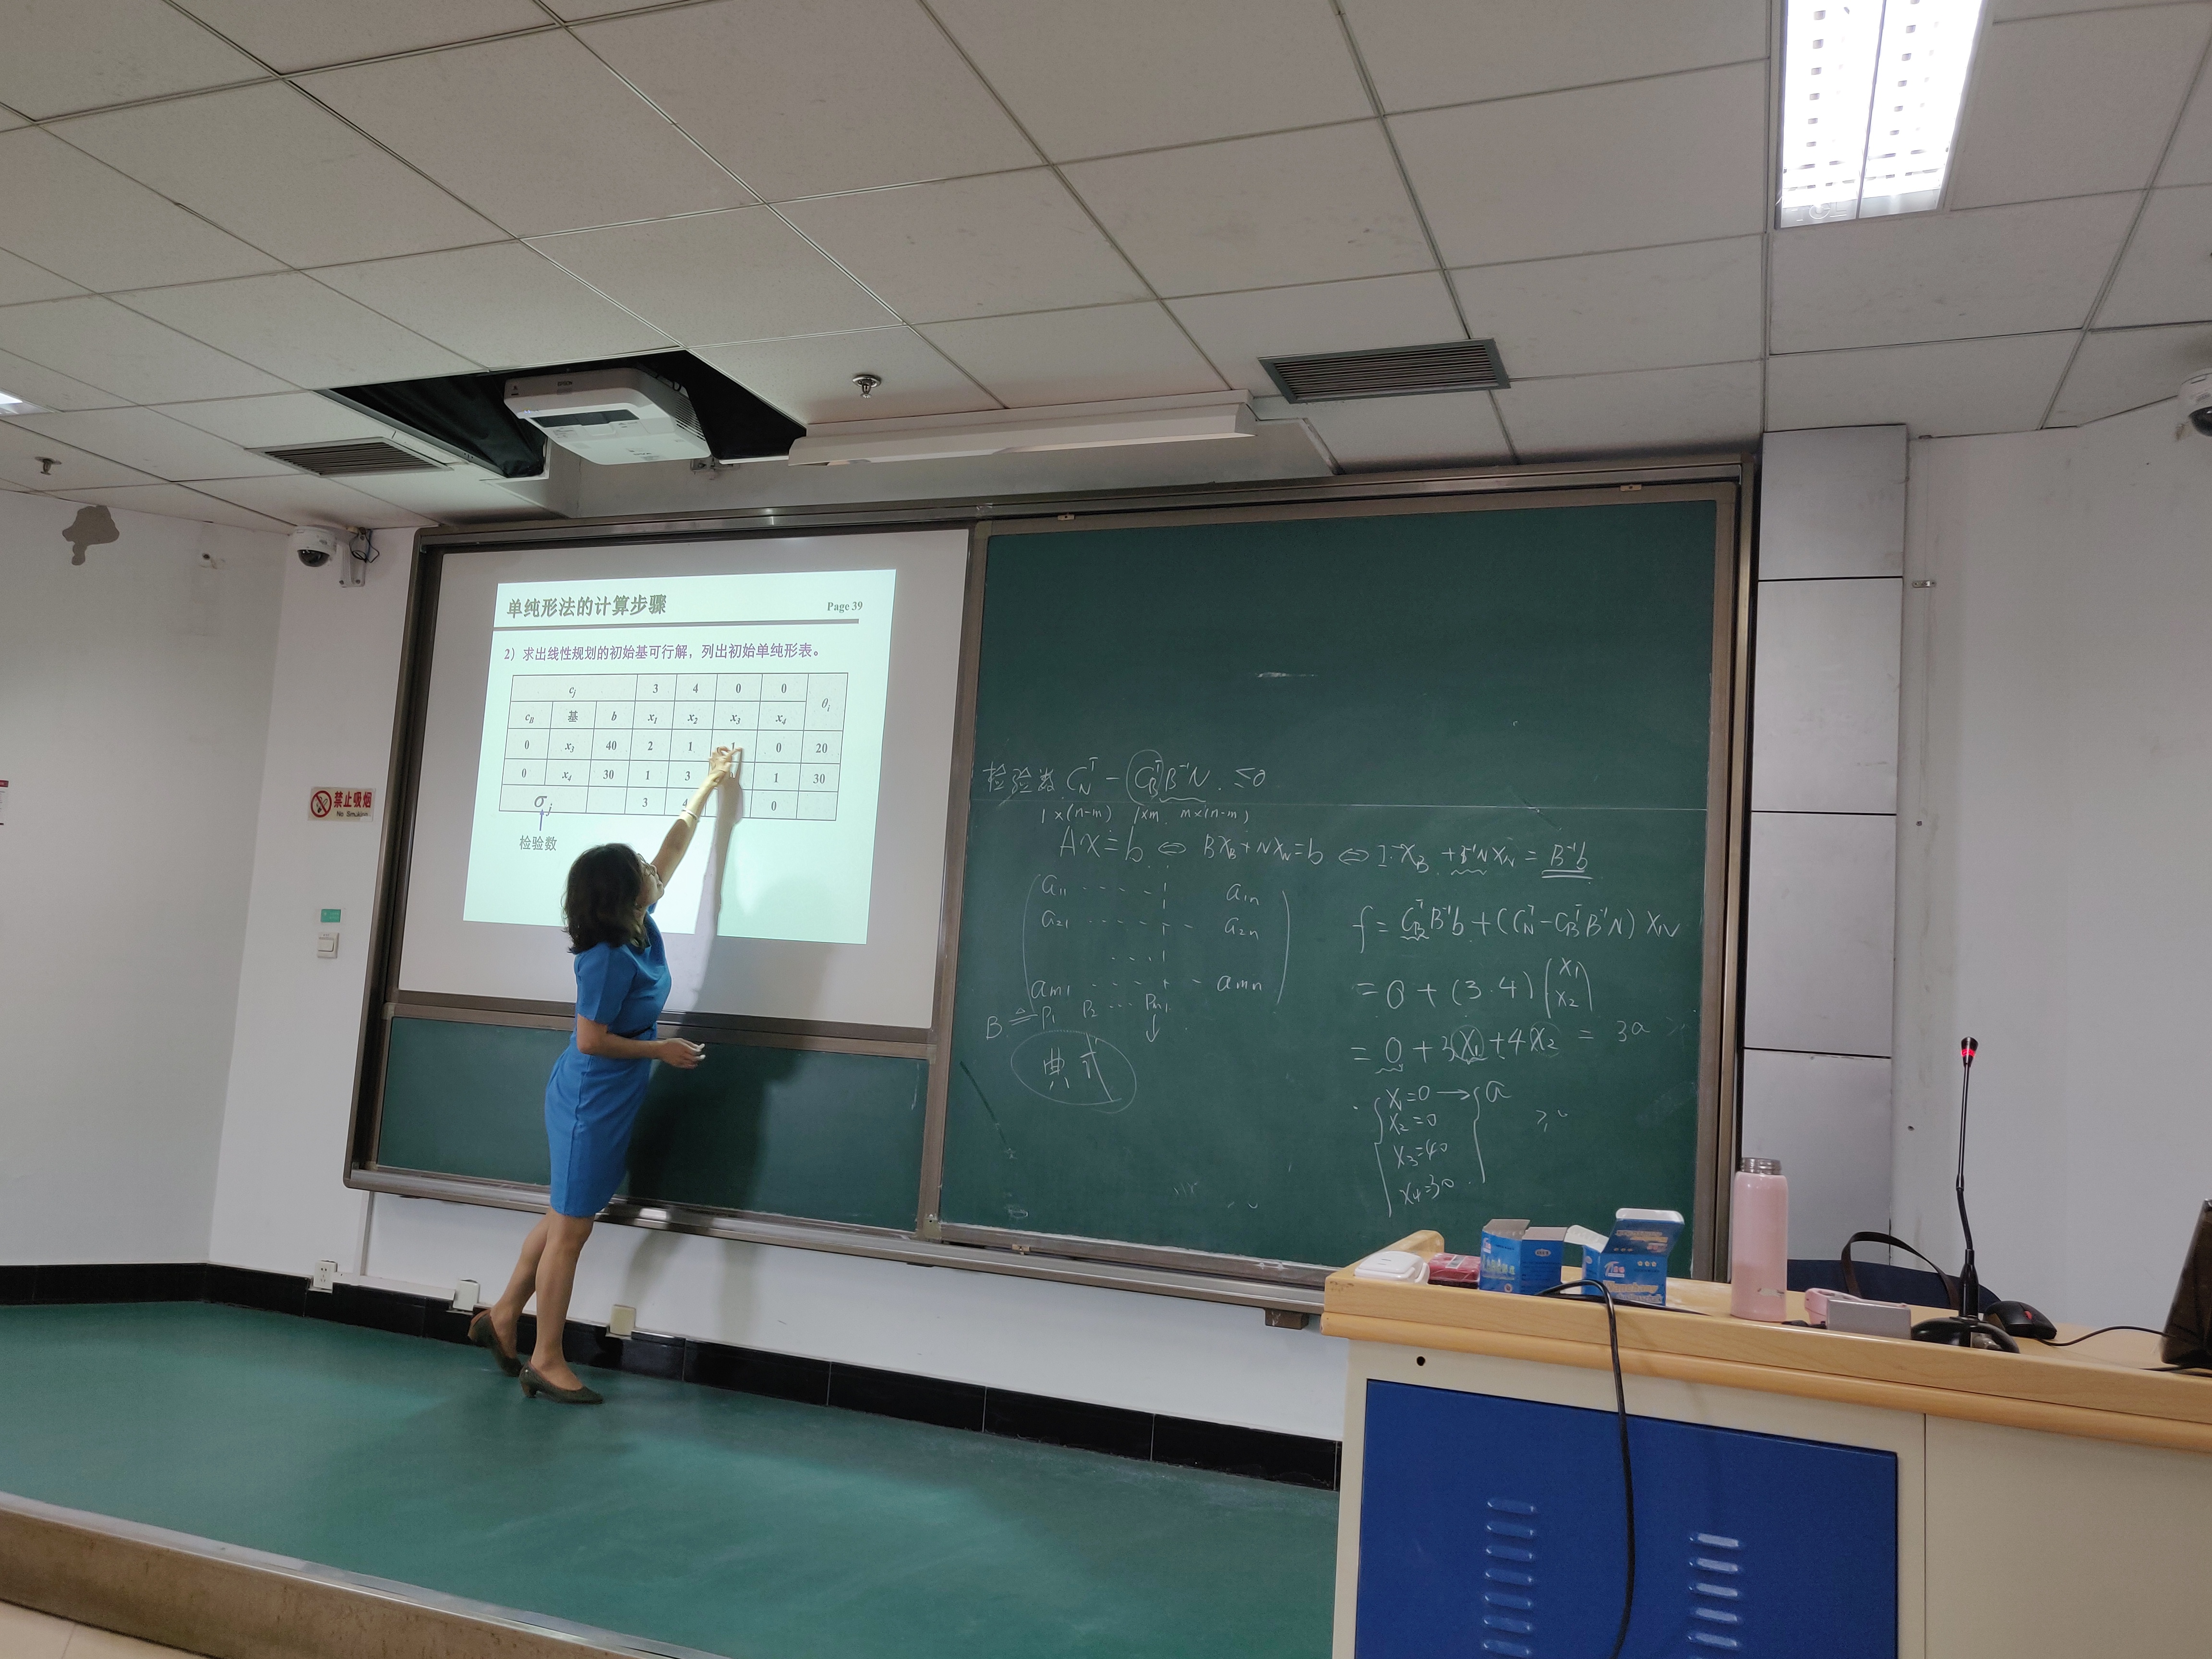 单纯形法的计算步骤 Page 39
2）求出线性规划的初始基可行解，列出初始单纯形表。
cj 3 4 0 0 θi
cB 基 b x1 x2 x3 x4
0 x3 40 2 1 1 0 20
0 x4 30 1 3 1 30
σj 3 4 0
检验数
禁止吸烟
No Smoking
检验数 C_N^T - C_B^T B^-1 N ≤0
1×(n-m) 1×m m×(n-m)
AX=b ⇔ BX_B+NX_N=b ⇔ I·X_B + B^-1 N X_N = B^-1 b
a11 ····· a1n
a21 ····· a2n
am1 ····· amn
B ≜ P1 P2 ··· Pm
典式
f = C_B^T B^-1 b + (C_N^T - C_B^T B^-1 N) X_N
= 0 + (3·4) (x1 x2)
= 0 + 3x1 + 4x2 = 3a
x1=0 → a
x2=0
x3=40
x4=30
≥0
TCL
EPSON